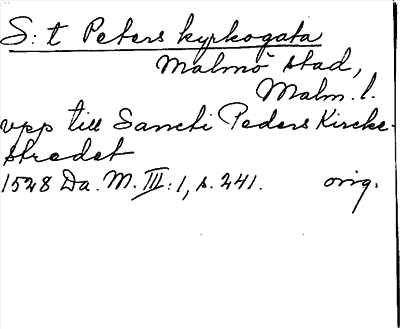 S:t Peters kyrkogata
Malmö stad,
Malm. l.
upp till Sancti Peders Kircke-
stredet
1528 Da. M. III: 1, s. 241. orig.